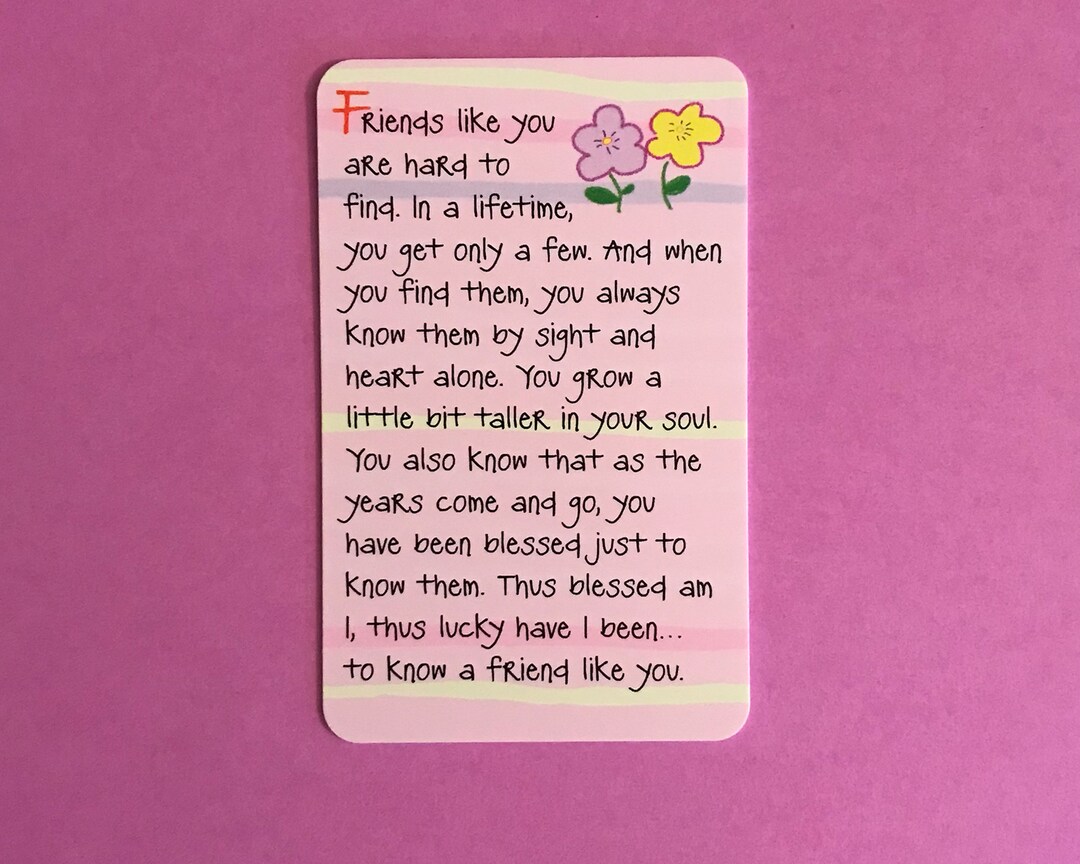 Friends like you
are hard to
find. In a lifetime,
you get only a few. And when
you find them, you always
know them by sight and
heart alone. You grow a
little bit taller in your soul.
You also know that as the
years come and go, you
have been blessed just to
know them. Thus blessed am
I, thus lucky have I been...
to know a friend like you.